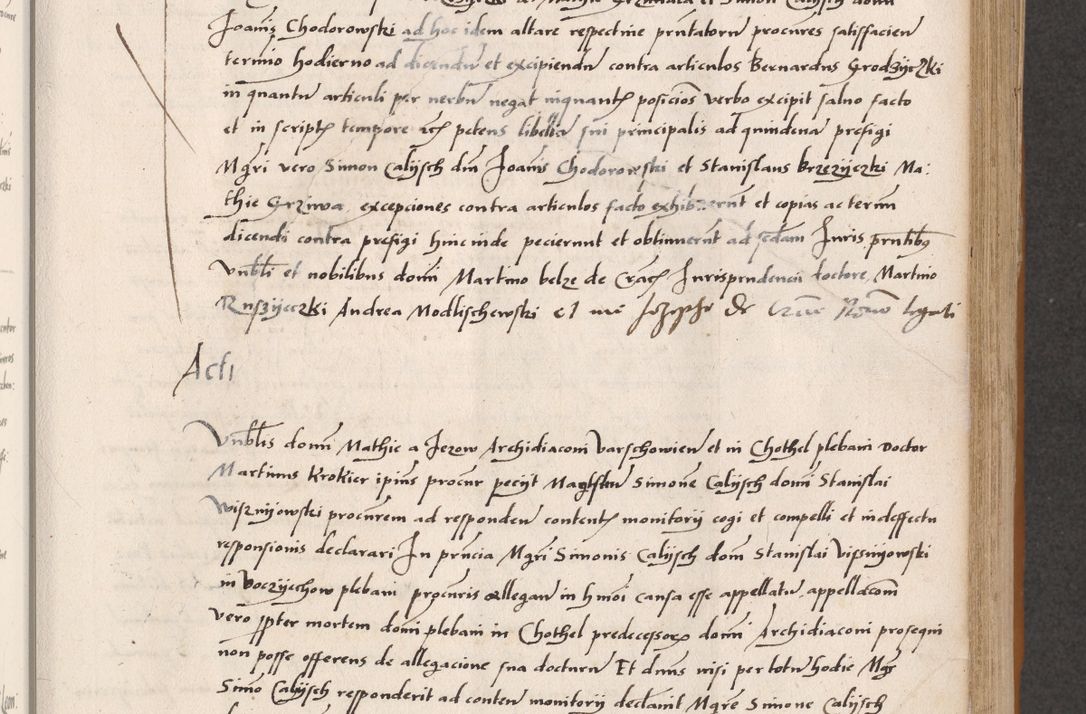 Joanis Chodorowski ad hoc idem altare respective pntatoru procures satisfacien
termio hodierno ad dicendu et excipiendu contra articulos Bernardus Grodzyczki
in quantu articuli per verbu negat inquantu posicios verbo excipit salvo facto
et in script tempore petens libella sui principalis ad quindena prefigi
Mgri vero Simon Calijsch dni Joanis Chodorowski et Stanislaus brzezyczki Ma:
thie Grziwa excepciones contra articulos facto exhibuerut et copias ac termi
dicendi contra prefigi hincinde pecierunt et obtinuerut ad sedam Juris pntibus
Vnbli et nobilibus domi Martino belze de Crac Jurisprudencii doctore, Martino
Ruszyeczki Andrea Modlischewski et me Josepho de legali
Acti
Vnblis domi Mathie a Jezow Archidiaconi Varschowien et in Chothel plebani Doctor
Martinus Krokier ipius procur pecijt Magistru Simone Calijsch domi Stanislai
Wisznijowski procurem ad responden content monitorij cogi et compelli et in deffectu
responsionis declarari In pncia Mgri Simonis Calijsch dom Stanislai Vissnijowski
in Voczijechow plebani procuris allegan in hmoi causa esse appellatu, appellacom
vero ppter mortem domi plebani in Chothel predecessor domi Archidiaconi prosequi
non posse offerens de allegacione sua docturu Et dnus nisi per totu hodie Mgr
Simo Calijsch responderit ad conten monitorij declavit Mgre Simone Calijsch